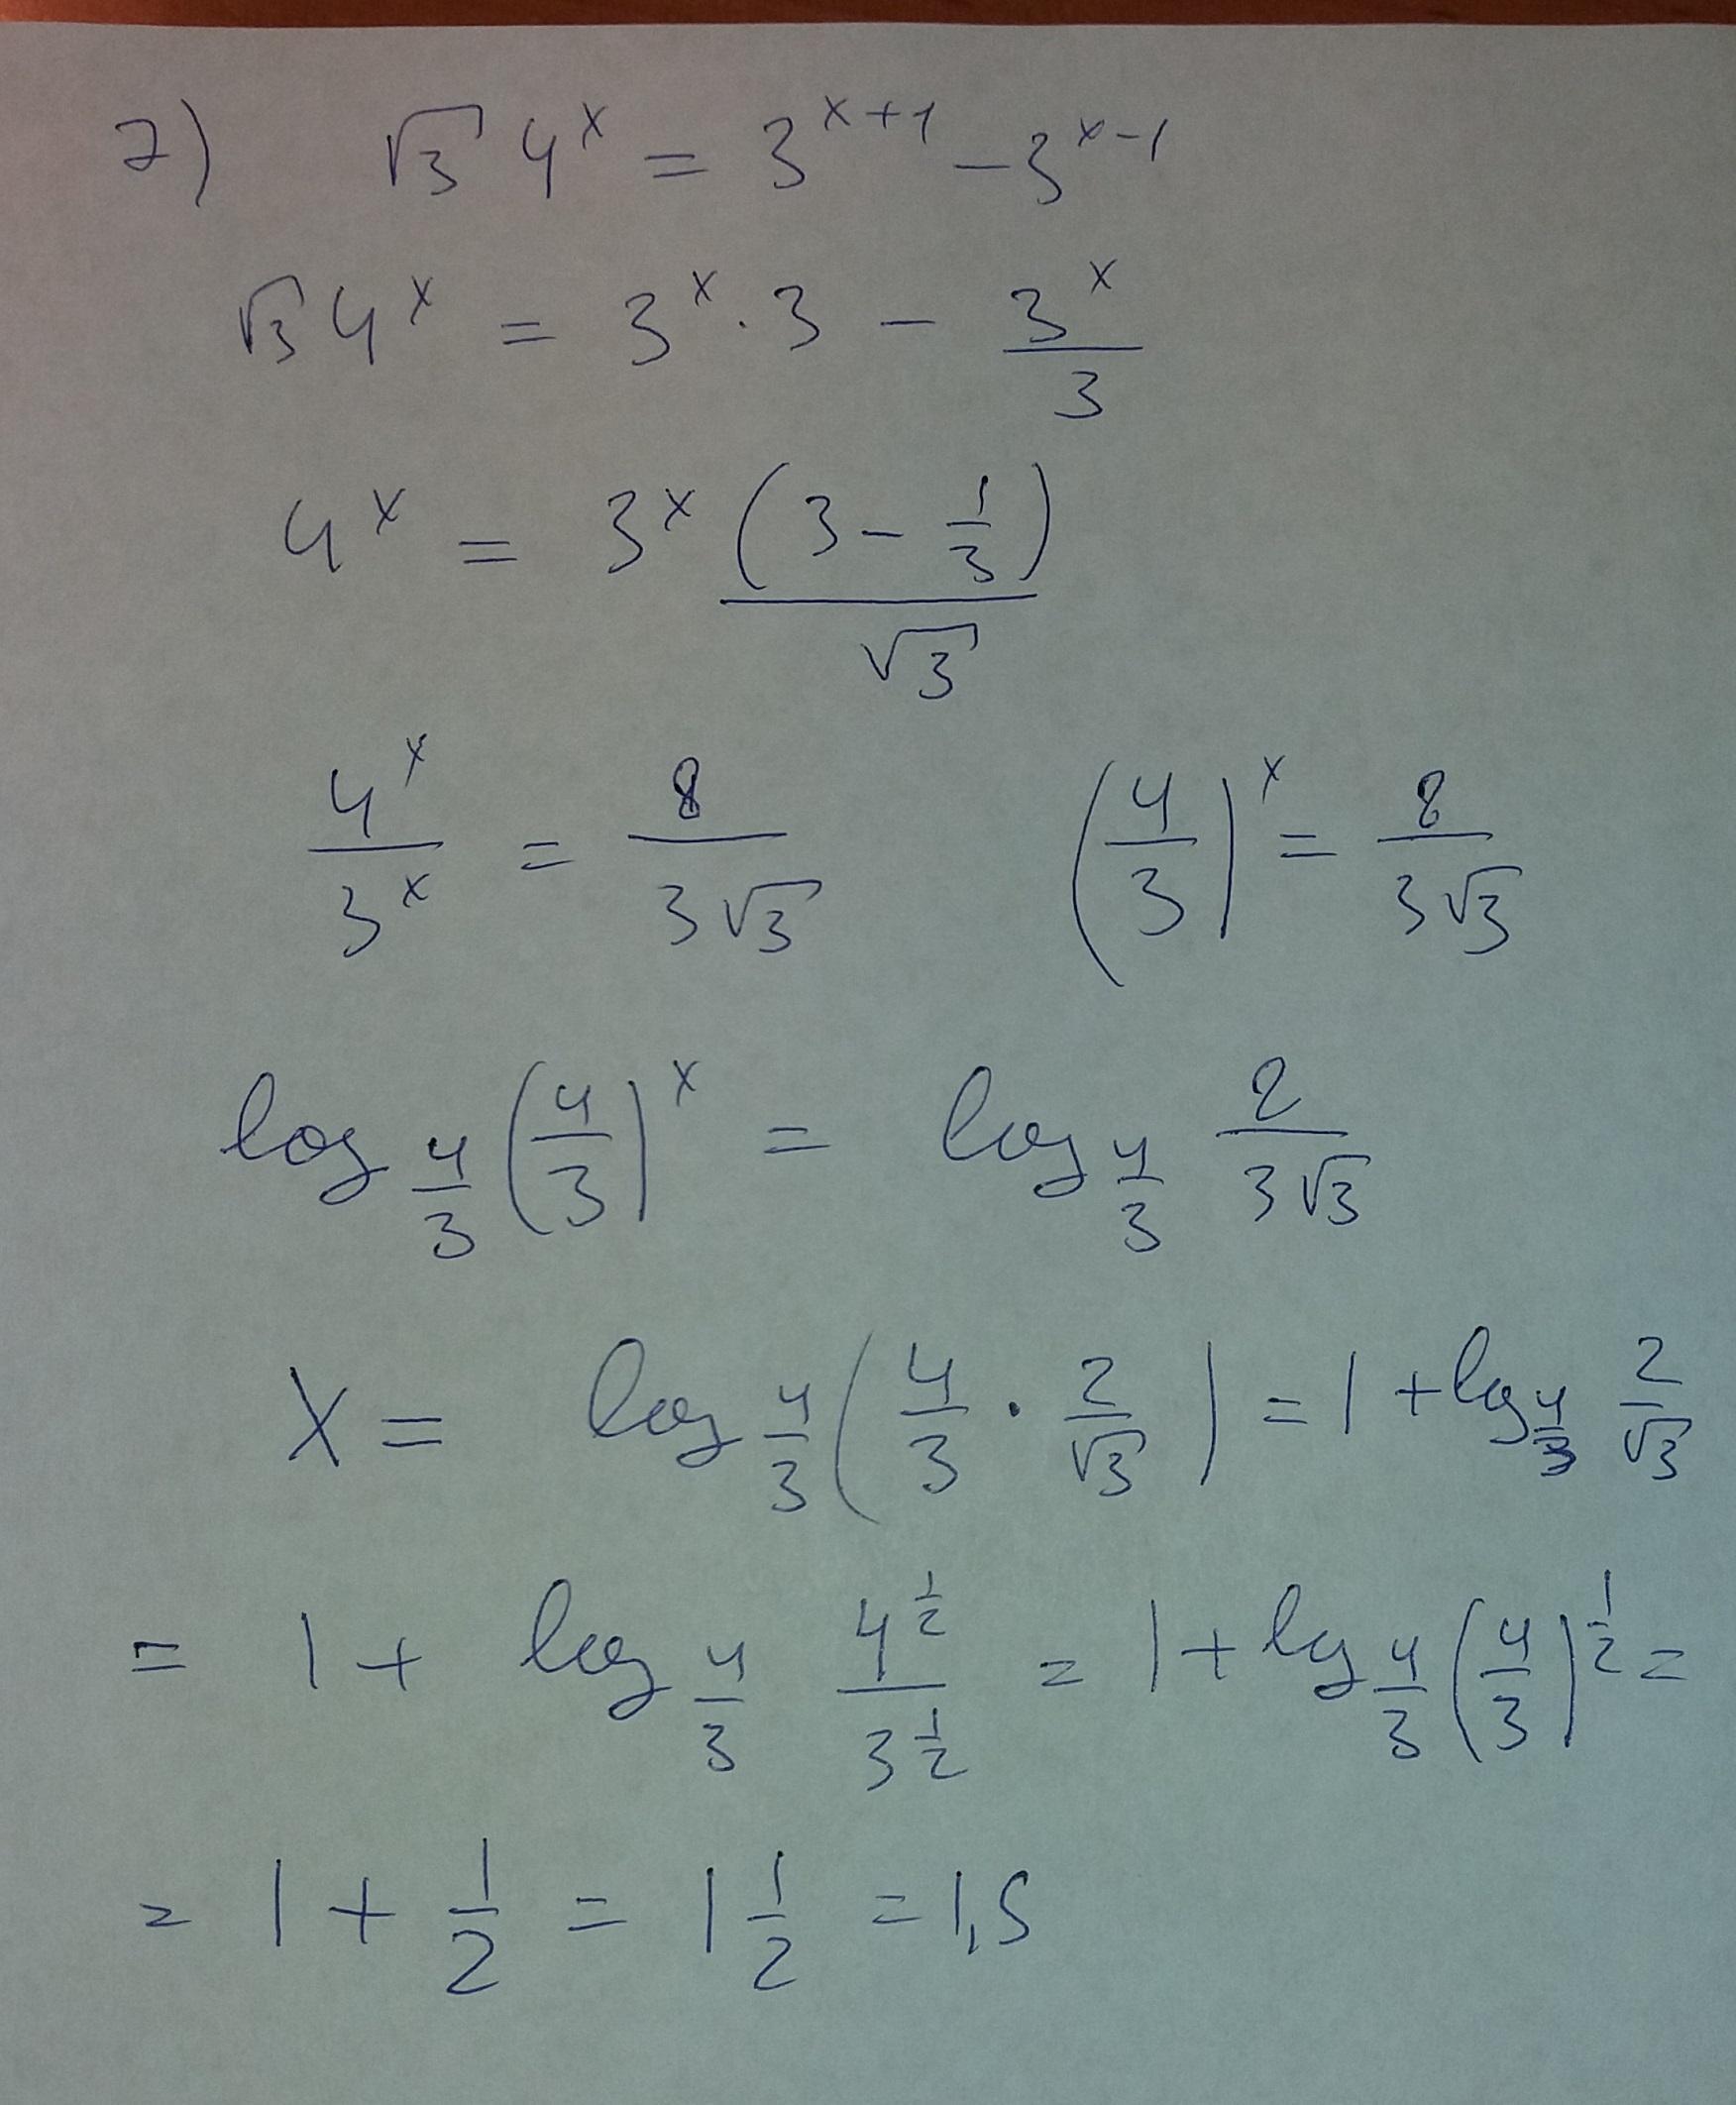 2) √3 4^x = 3^(x+1) - 3^(x-1)
√3 4^x = 3^x · 3 - 3^x/3
4^x = 3^x (3 - 1/3)/√3
4^x/3^x = 8/(3√3) (4/3)^x = 8/(3√3)
log_(4/3) (4/3)^x = log_(4/3) 8/(3√3)
X = log_(4/3) (4/3 · 2/√3) = 1 + log_(4/3) 2/√3
= 1 + log_(4/3) 4^(1/2)/3^(1/2) = 1 + log_(4/3) (4/3)^(1/2) =
= 1 + 1/2 = 1 1/2 = 1,5